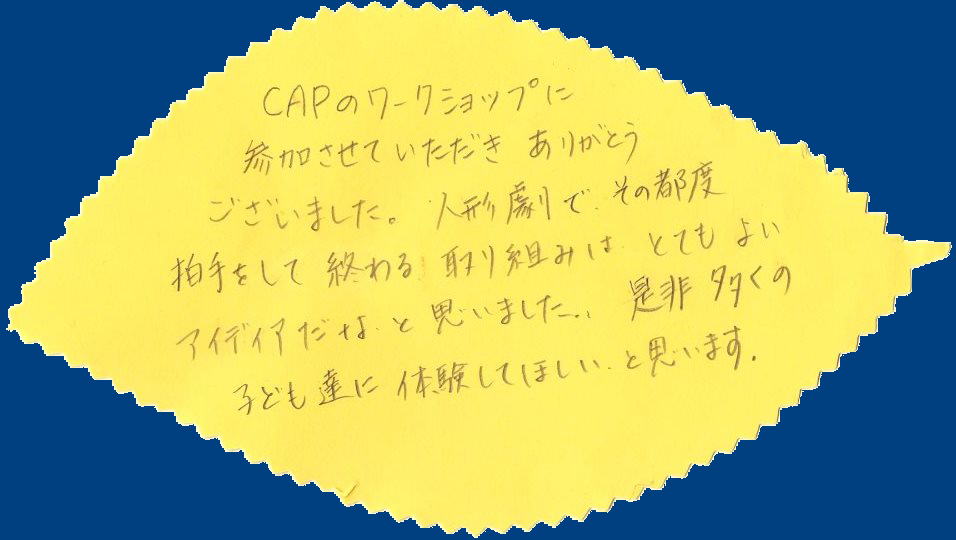 CAPのワークショップに
参加させていただき ありがとう
ございました。 人形劇で、その都度
拍手をして 終わる 取り組みは、とても よい
アイディアだなぁと 思いました。 是非 多くの
子ども達に 体験してほしい、と思います。